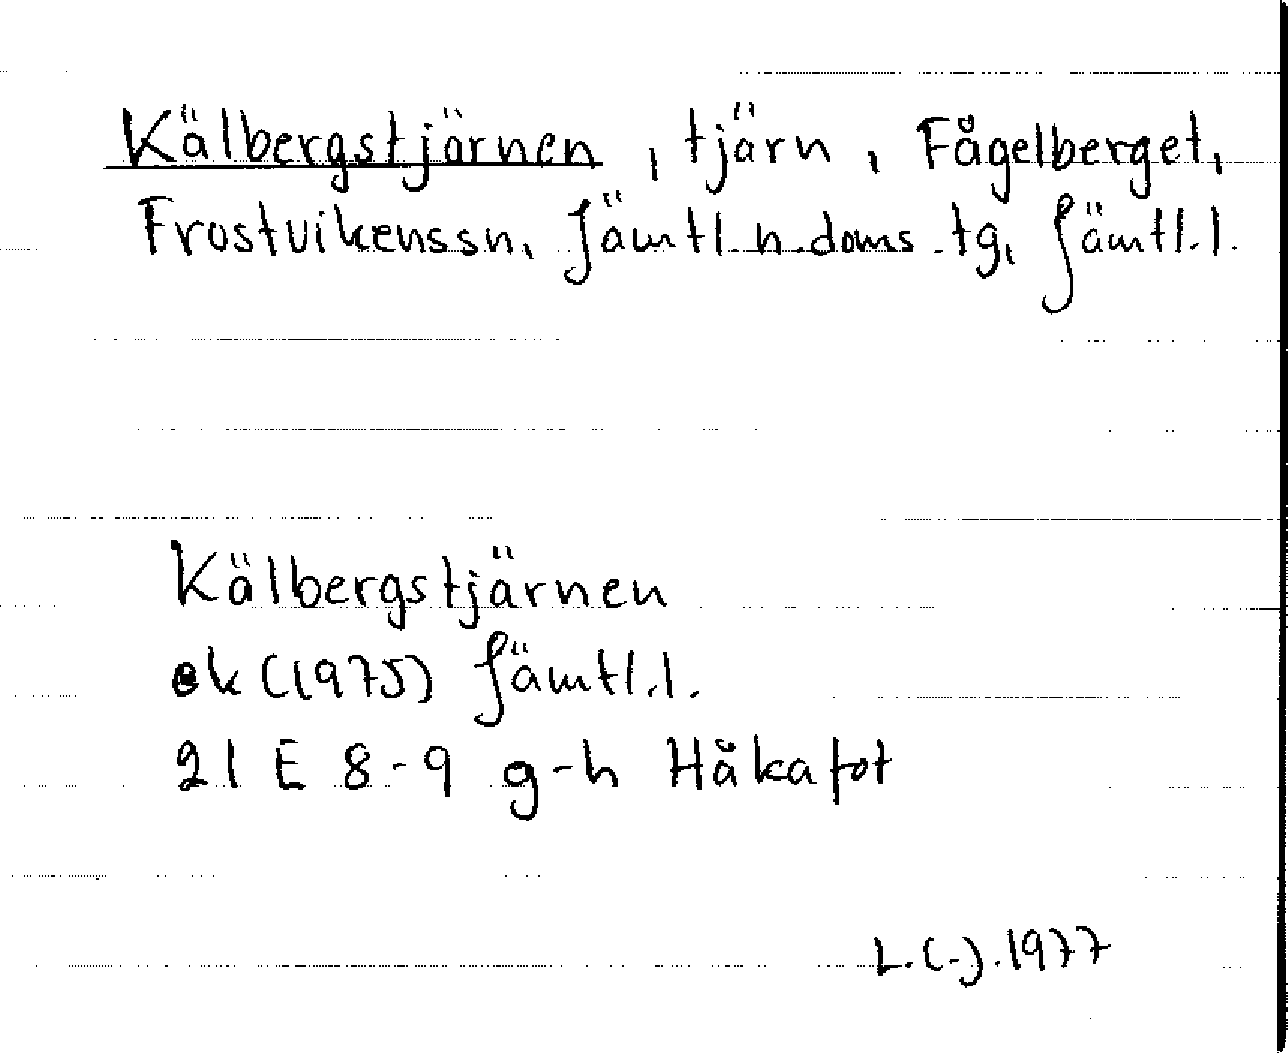 Kälbergstjärnen, tjärn, Fågelberget,
Frostvikens sn, Jämtl. n. doms. tg, Jämtl. l.
Kälbergstjärnen
ek (1975) Jämtl. l.
21 E 8-9 g-h Håkafot
L.C-J. 1977